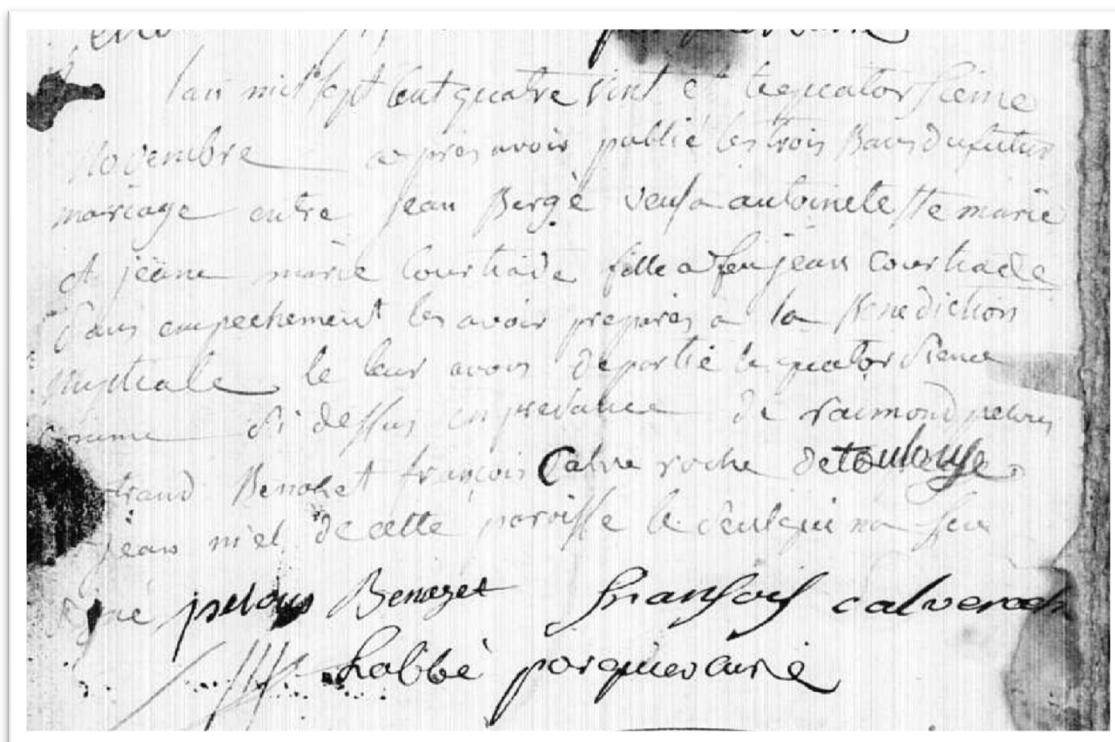 lan mil sept cent quatre vint et le quatorsieme
novembre apres avoir publié les trois Bans du futur
mariage entre jean Bergè veuf a antoinete ste marie
et jeane marie Courtiade fille a feu jean courtiade
sans empechement les avoir preparés a la Benediction
nuptiale le leur avons departie le quatorsieme
comme si dessus en presance de raimond pelous
trand Benaset françois Calve roche de toulouse
jean miel de cette paroisse le seul qui na seu
signé pelous Benazet fransois calveroch
Labbè